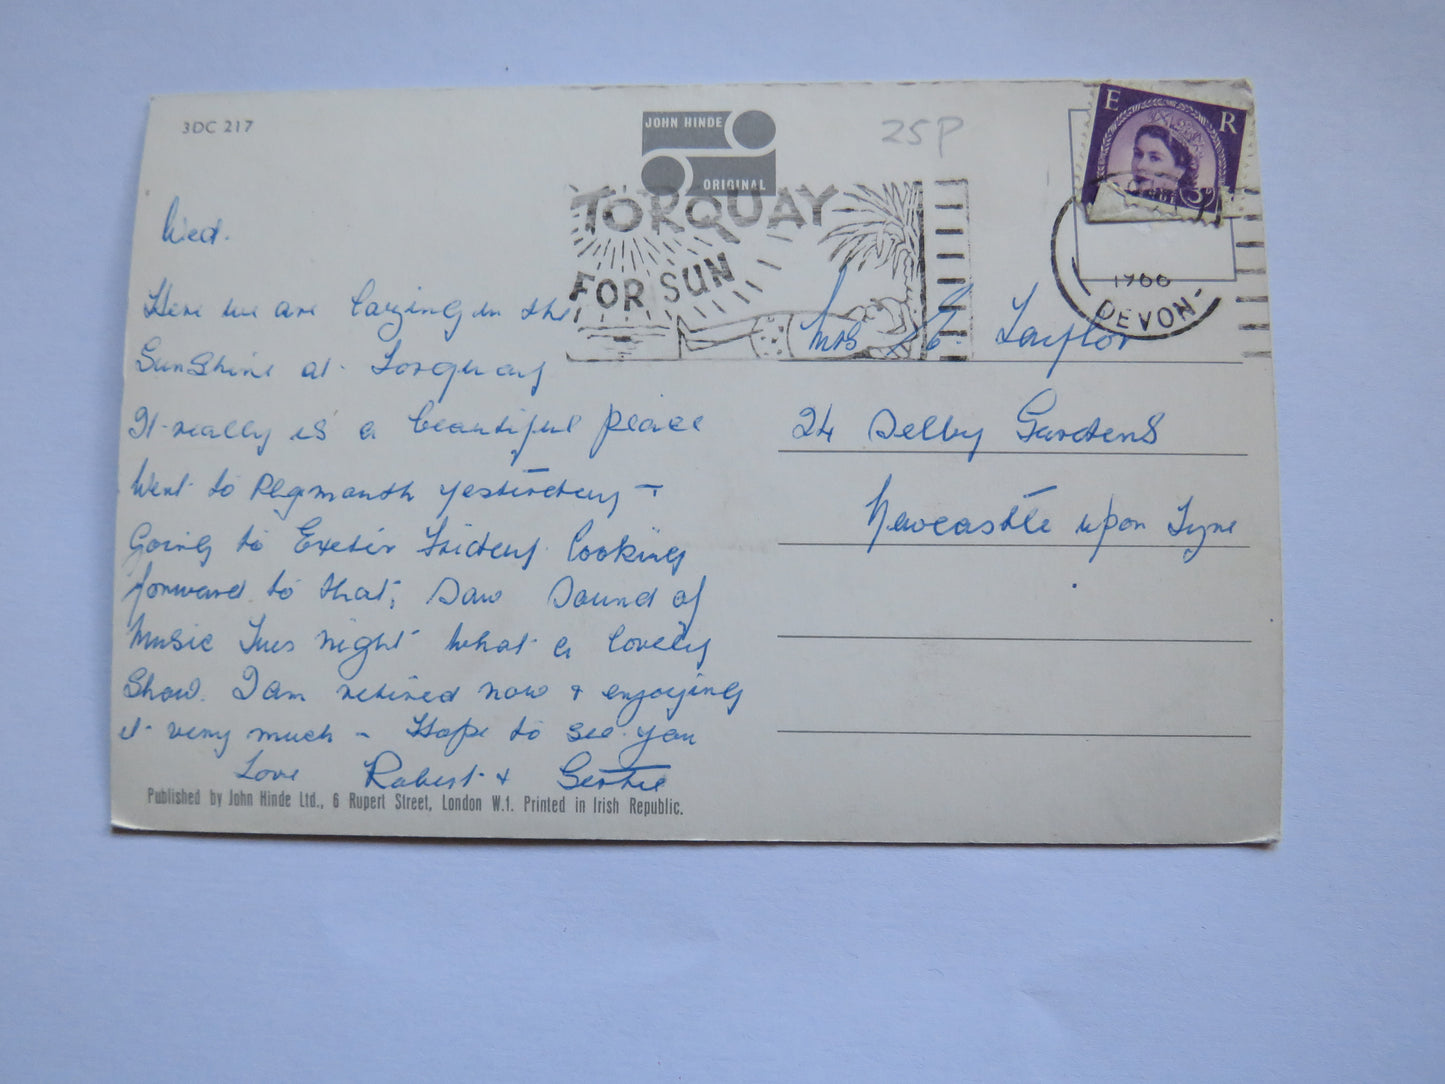 3DC 217
JOHN HINDE
ORIGINAL
25P
E R
3D
TORQUAY
FOR SUN
1966
DEVON
Wed.
Here we are lazying in the
Sunshine at Torquay
It really is a beautiful place
Went to Plymouth yesterday -
Going to Exeter Friday looking
forward to that, Saw Sound of
Music Tues night what a lovely
Show. I am retired now & enjoying
it very much - Hope to see you
Love Robert & Gertie
Mrs Taylor
24 Selby Gardens
Newcastle upon Tyne
Published by John Hinde Ltd., 6 Rupert Street, London W.1. Printed in Irish Republic.